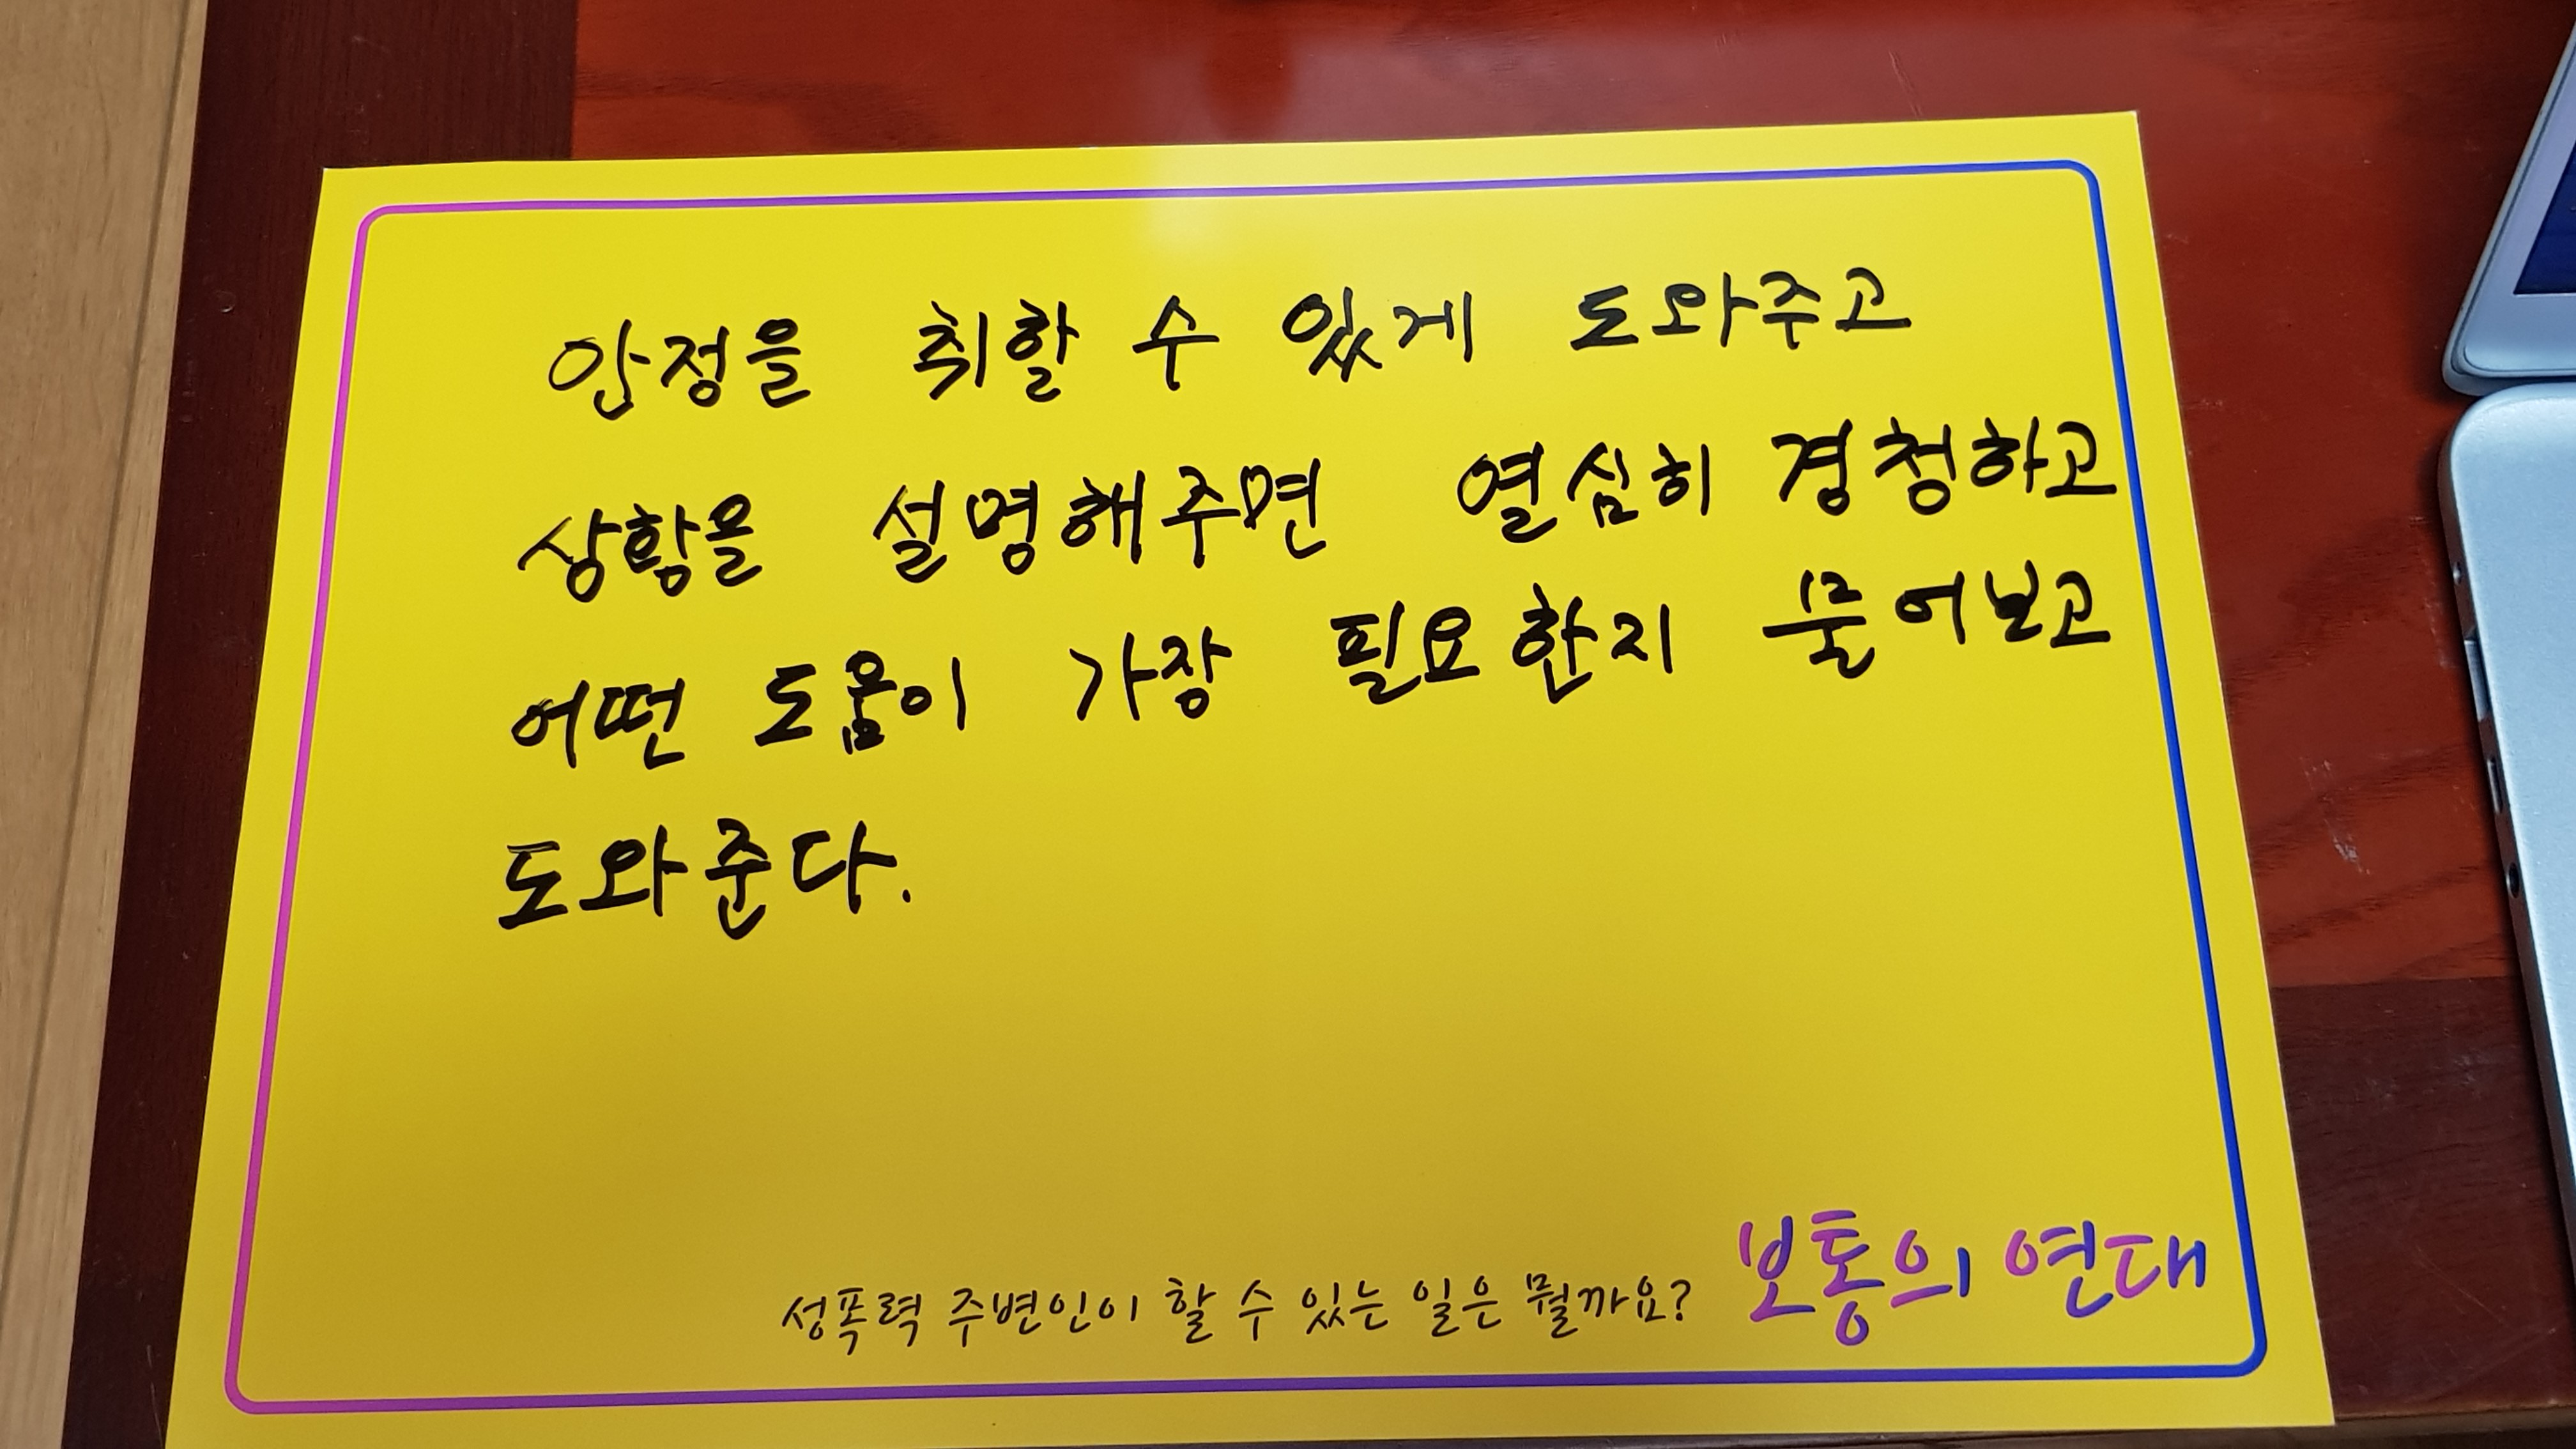 안정을 취할 수 있게 도와주고
상황을 설명해주면 열심히 경청하고
어떤 도움이 가장 필요한지 물어보고
도와준다.
성폭력 주변인이 할 수 있는 일은 뭘까요? 보통의 연대